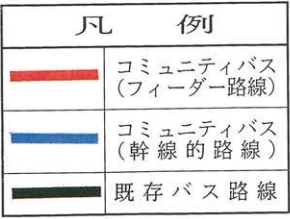 凡例
コミュニティバス
(フィーダー路線)
コミュニティバス
(幹線的路線)
既存バス路線